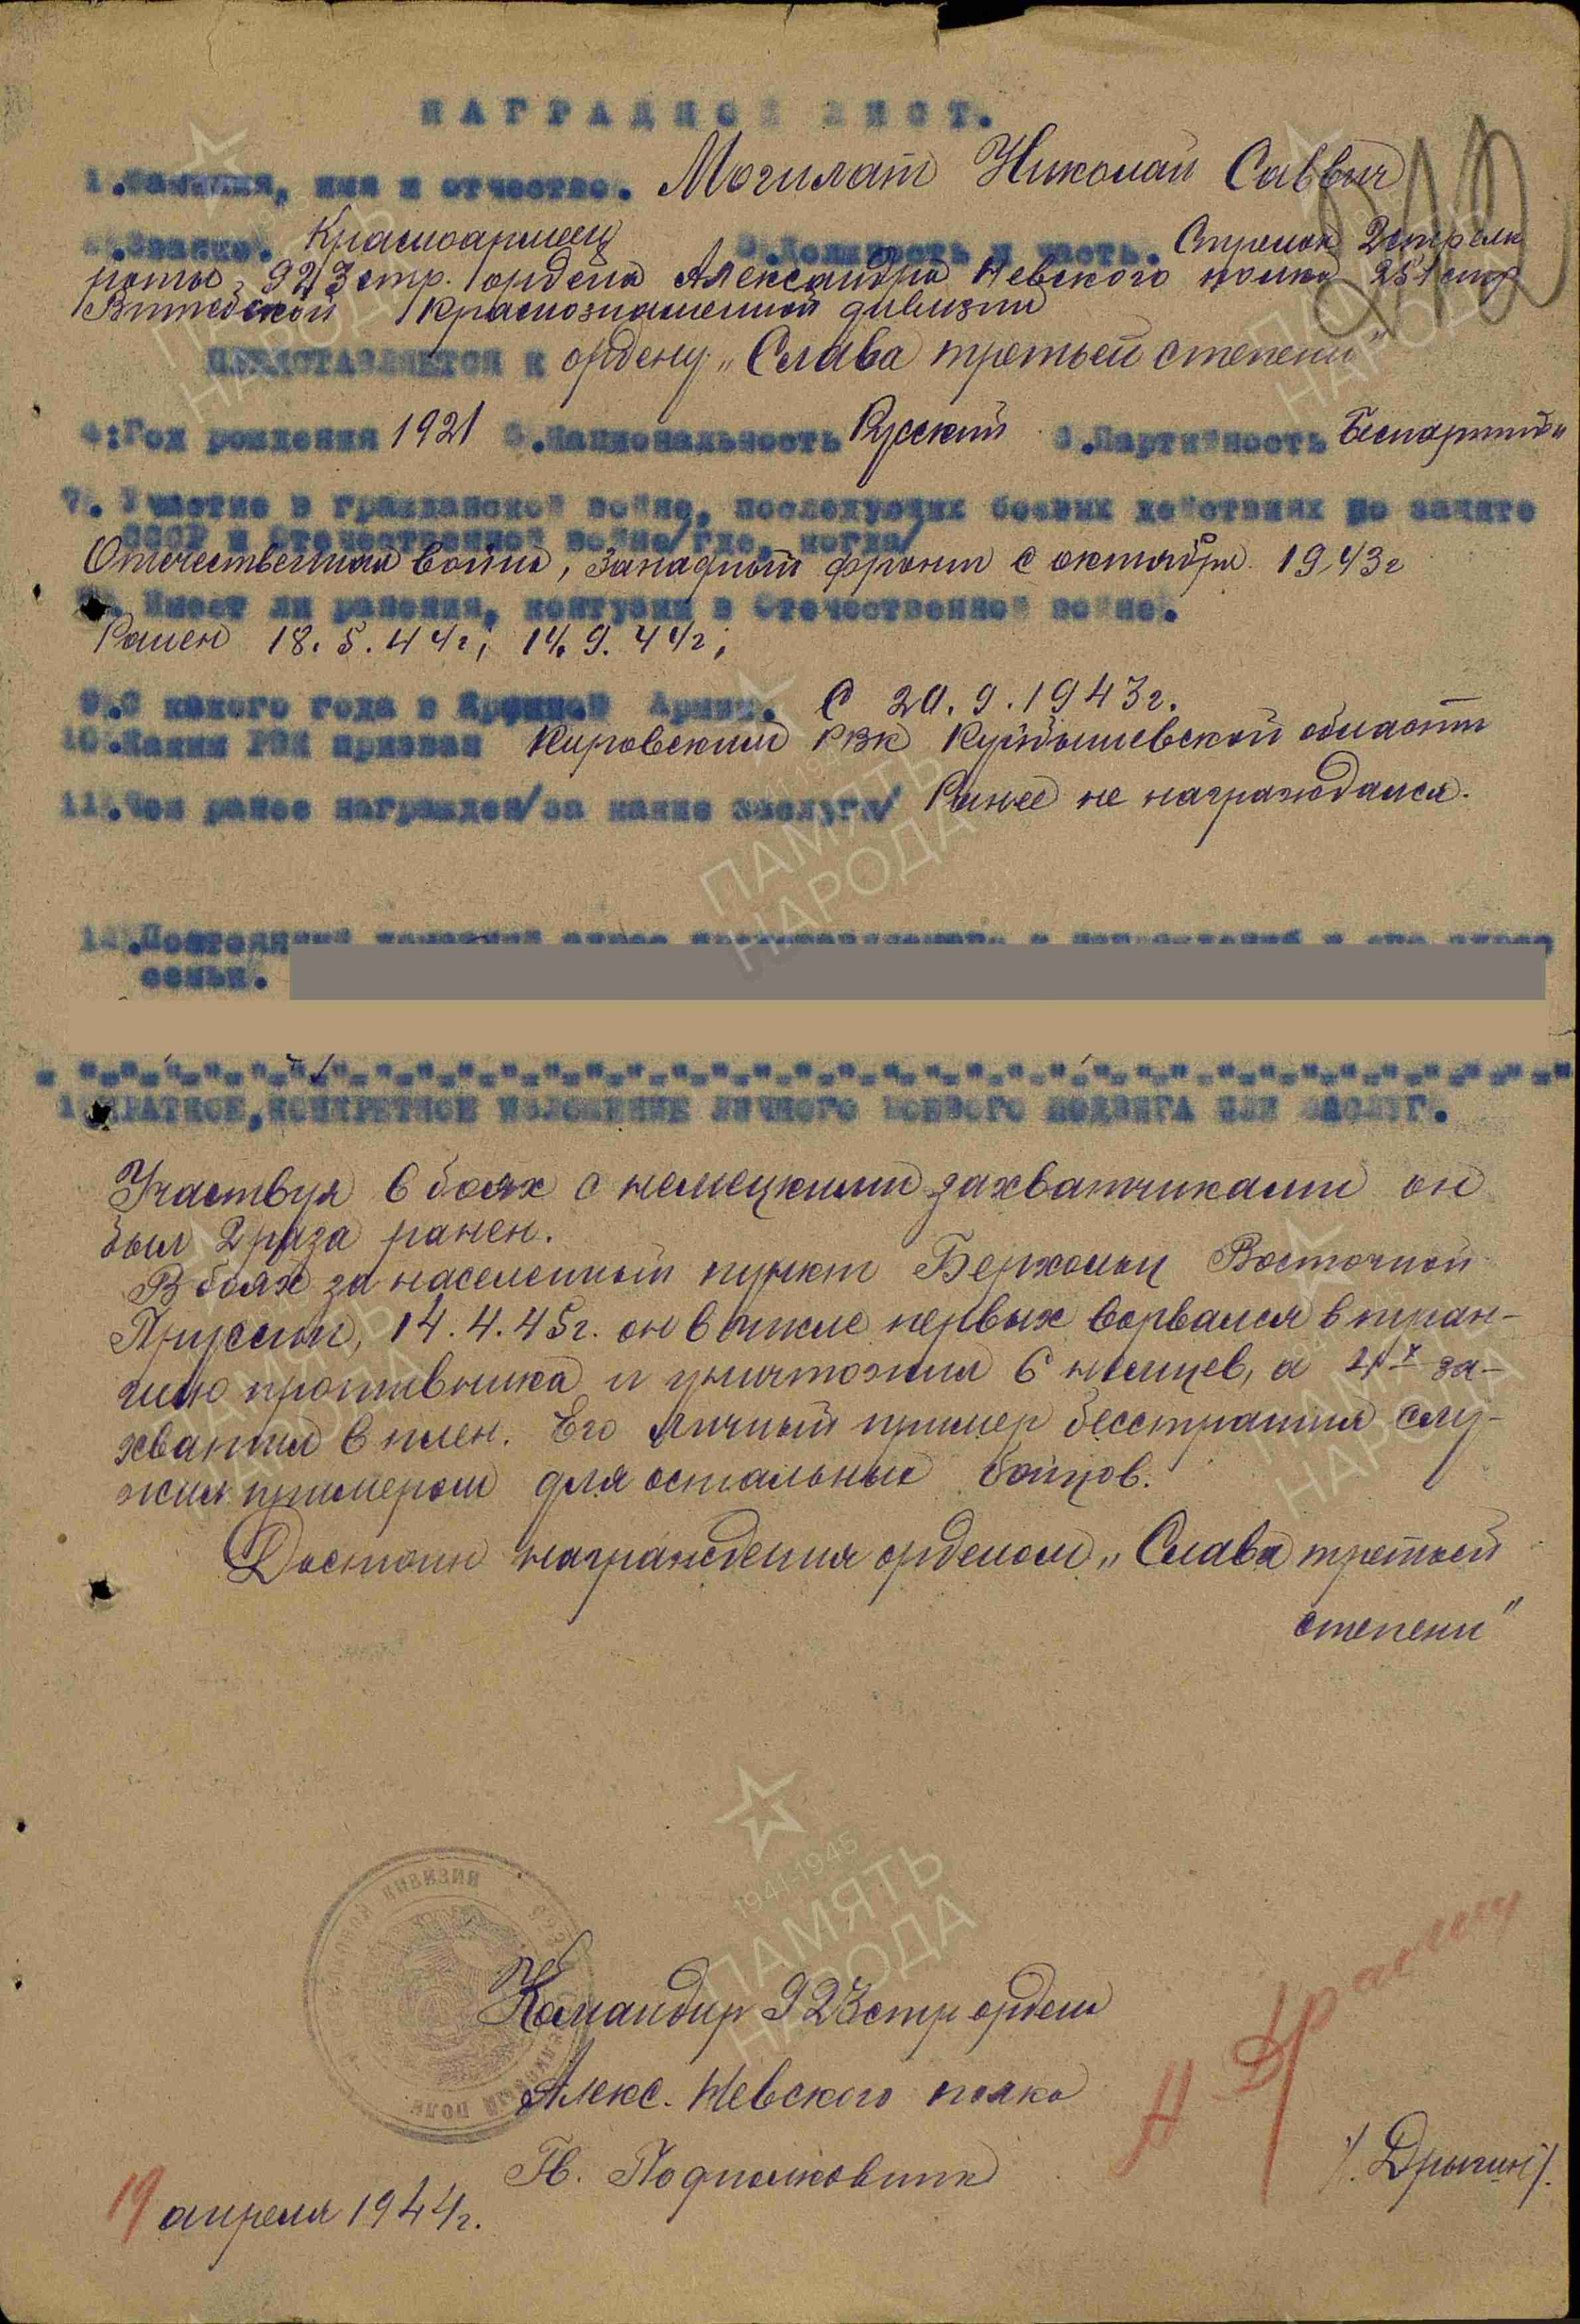 НАГРАДНОЙ ЛИСТ.
1.Фамилия, имя и отчество. Могилат Николай Саввич
2.Звание. Красноармеец 3.Должность и часть. Стрелок 2 стрелк
роты, 923 стр. ордена Александра Невского полка 251 стр
Витебской Краснознаменной дивизии
ПРЕДСТАВЛЯЕТСЯ к ордену „Слава третьей степени"
4:Год рождения 1921 5.Национальность Русский 6.Партийность Беспартий
7. Участие в гражданской войне, последующих боевых действиях по защите
СССР и Отечественной войне/где, когда/
Отечественная война, Западный фронт с октября 1943г
8. Имеет ли ранения, контузии в Отечественной войне.
Ранен 18.5.44г; 14.9.44г;
9.С какого года в Красной Армии. С 20.9.1943г.
10.Каким РВК призван Кировским РВК Куйбышевской области
11.Чем ранее награжден/за какие заслуги/ Ранее не награждался.
12.Постоянный домашний адрес представляемого к награждению и его адрес
семьи.
13.КРАТКОЕ,КОНКРЕТНОЕ ИЗЛОЖЕНИЕ ЛИЧНОГО БОЕВОГО ПОДВИГА ИЛИ ЗАСЛУГ.
Участвуя в боях с немецкими захватчиками он
был 2 раза ранен.
В боях за населенный пункт Берхольц Восточной
Пруссии, 14.4.45г. он в числе первых ворвался в тран-
шею противника и уничтожил 6 немцев, а 4х за-
хватил в плен. Его личный пример бесстрашия слу-
жил примером для остальных бойцов.
Достоин награждения орденом „Слава третьей
степени"
Командир 923 стр ордена
Алекс. Невского полка
Гв. Подполковник /Дрыгин/.
19 апреля 1944г.
ПАМЯТЬ
НАРОДА
1941-1945